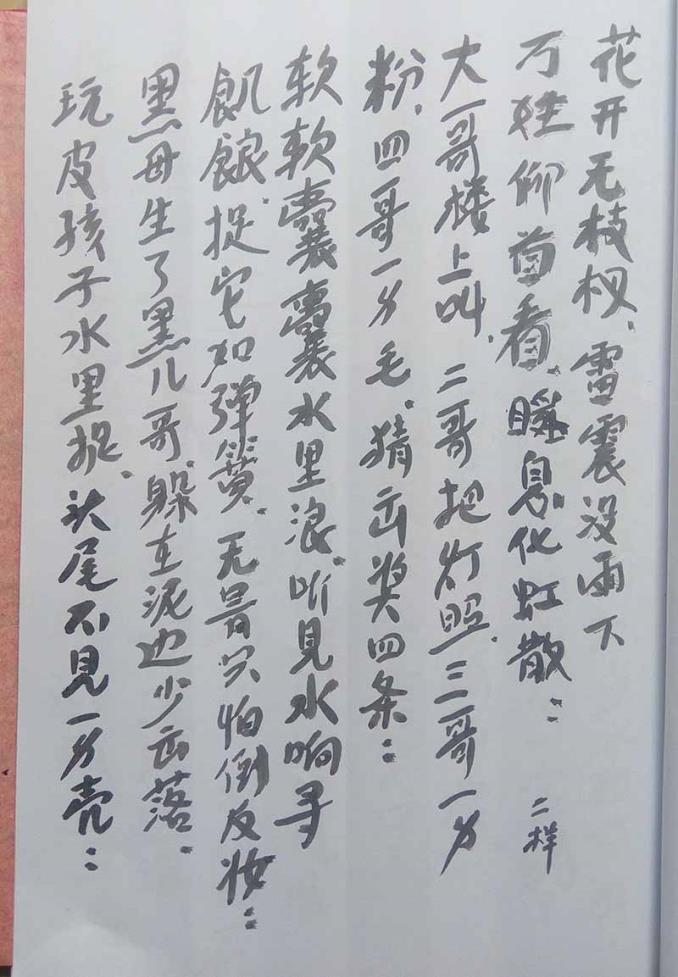 花开无枝杈、雷震没雨下
万姓仰首看、瞬息化虹散：二样
大哥楼上叫、二哥把灯照、三哥一身
粉、四哥一身毛、猜击奖四条：
软软囊囊水里浪、听见水响寻
飢餓、捉它如弹簧、无骨只怕倒反妆：
黑母生了黑儿哥、躲在泥边少击落、
玩皮孩子水里捉、头尾不見一身壳：